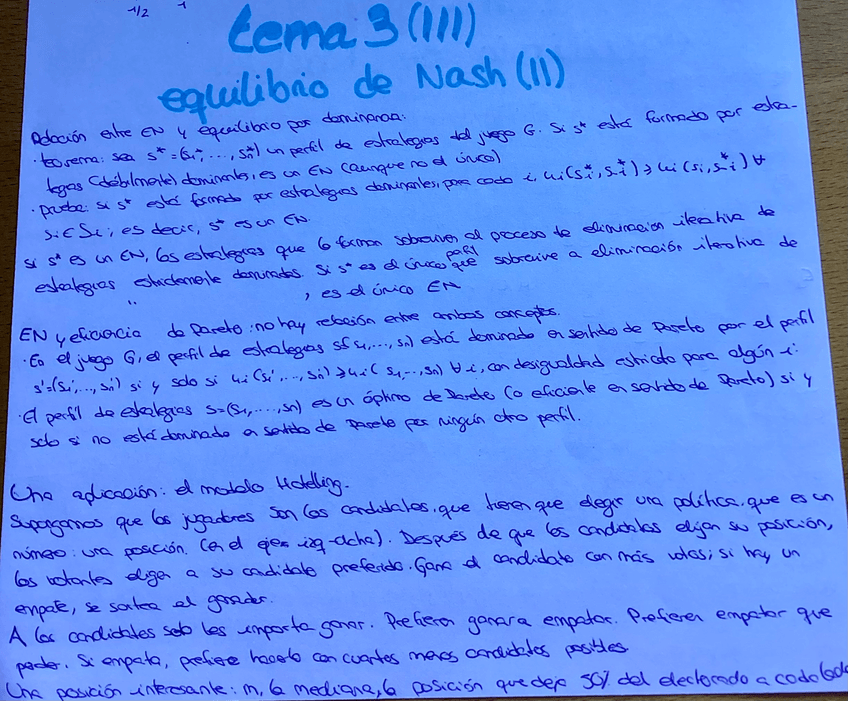 1/2 1
tema 3 (III)
equilibrio de Nash (II)
Relación entre EN y equilibrio por dominancia:
· teorema: sea s* = (s₁*, ..., sₙ*) un perfil de estrategias del juego G. Si s* está formado por estra-
tegias (débilmente) dominantes, es un EN (aunque no el único)
· prueba: si s* está formado por estrategias dominantes, para cada i, ui(si*, s-i*) ≥ ui(si, s-i*) ∀
si ∈ Si; es decir, s* es un EN.
si s* es un EN, las estrategias que lo forman sobreviven al proceso de eliminación iterativa de
estrategias estrictamente dominadas. Si s* es el único perfil que sobrevive a eliminación iterativa de
" , es el único EN
EN y eficiencia de Pareto: no hay relación entre ambos conceptos.
· En el juego G, el perfil de estrategias s(s₁, ..., sₙ) está dominado en sentido de Pareto por el perfil
s'=(s₁', ..., sₙ') si y solo si ui(s₁', ..., sₙ') ≥ ui(s₁, ..., sₙ) ∀ i, con desigualdad estricta para algún i.
· El perfil de estrategias s=(s₁, ..., sₙ) es un óptimo de Pareto (o eficiente en sentido de Pareto) si y
solo si no está dominado en sentido de Pareto por ningún otro perfil.
Una aplicación: el modelo Hotelling.
Supongamos que los jugadores son los candidatos, que tienen que elegir una política, que es un
número: una posición (en el eje izq-dcha). Después de que los candidatos elijan su posición,
los votantes eligen a su candidato preferido. Gana el candidato con más votos; si hay un
empate, se sortea el ganador.
A los candidatos solo les importa ganar. Prefieren ganar a empatar. Prefieren empatar que
perder. Si empata, prefiere hacerlo con cuantos menos candidatos posibles
Una posición interesante: m, la mediana, la posición que deja 50% del electorado a cada lado